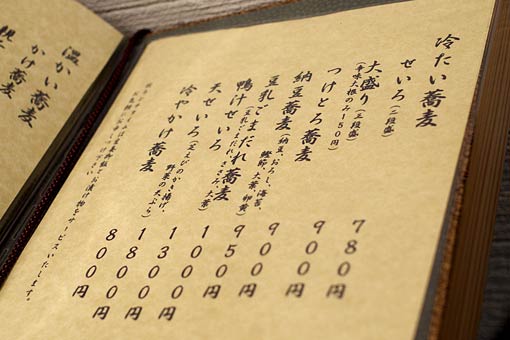 冷たい蕎麦
せいろ(二段盛)
780円
大盛り(三段盛)
(辛味大根のみ150円)
つけとろ蕎麦
900円
納豆蕎麦(納豆、おろし、海苔、
鰹節、大葉、卵黄)
900円
豆乳ごまだれ蕎麦
(豆乳ごまだれ、ささみ、大葉)
950円
鴨汁せいろ
天せいろ(芝えびのかき揚げ、
野菜の天ぷら)
冷やかけ蕎麦
800円
お漬け物をサービスいたします。
温かい蕎麦
かけ蕎麦